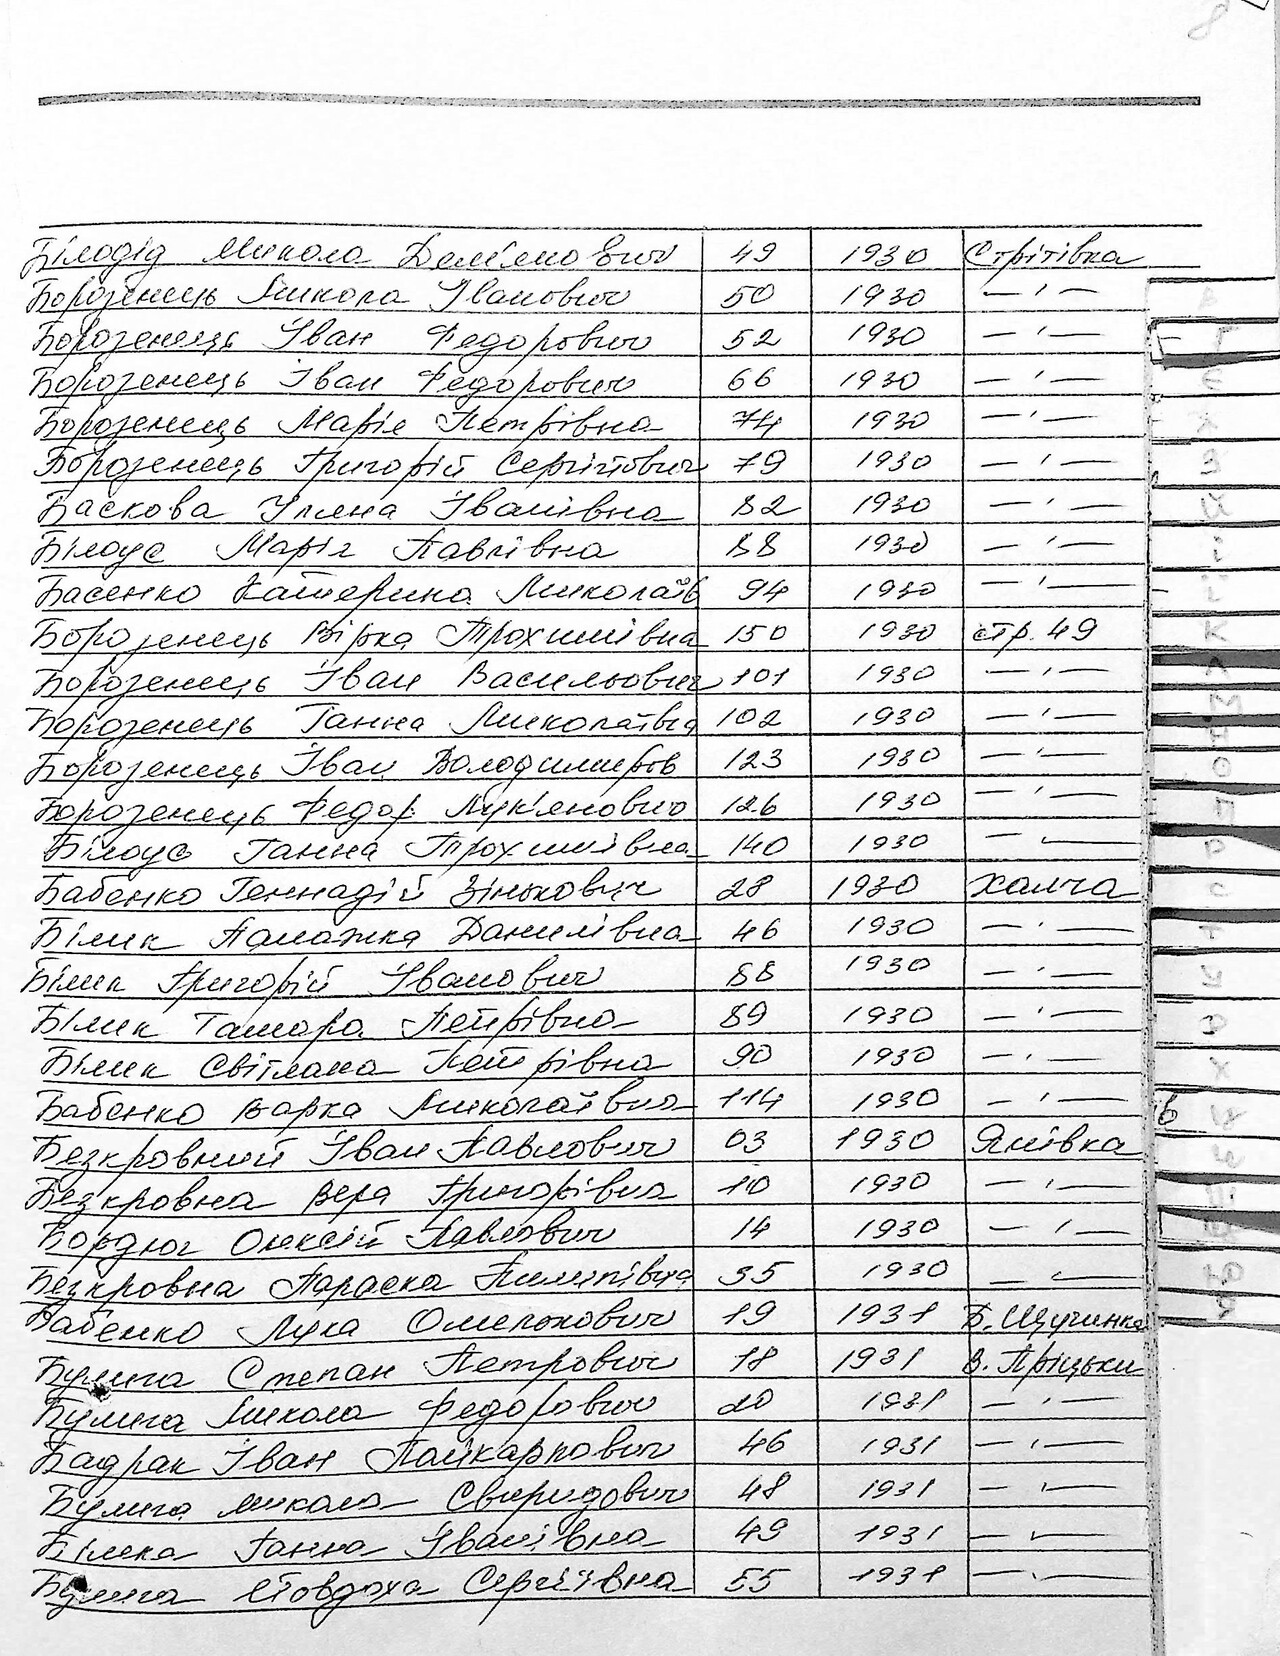 8
Білодід Микола Дем'янович 49 1930 Стрітівка
Борозенець Микола Іванович 50 1930 — ' —
Борозенець Іван Федорович 52 1930 — ' —
Борозенець Іван Федорович 66 1930 — ' —
Борозенець Марія Петрівна 74 1930 — ' —
Борозенець Григорій Сергійович 79 1930 — ' —
Баскова Уляна Іванівна 82 1930 — ' —
Білоус Марія Павлівна 88 1930 — ' —
Басенко Катерина Миколаїв 94 1930 — ' —
Борозенець Вірка Трохимівна 150 1930 стр. 49
Борозенець Іван Васильович 101 1930 — ' —
Борозенець Ганна Миколаївна 102 1930 — ' —
Борозенець Іван Володимиров 123 1930 — ' —
Борозенець Федор Лук'янович 126 1930 — ' —
Білоус Ганна Трохимівна 140 1930 — ' —
Бабенко Геннадій Зінькович 28 1930 Халча
Білик Паламажка Данилівна 46 1930 — ' —
Білик Григорій Іванович 88 1930 — ' —
Білик Тамара Петрівна 89 1930 — ' —
Білик Світлана Петрівна 90 1930 — ' —
Бабенко Варка Миколаївна 114 1930 — ' —
Безкровний Іван Павлович 03 1930 Янівка
Безкровна Вера Григорівна 10 1930 — ' —
Бордюг Олексій Павлович 14 1930 — ' —
Безкровна Параска Пилипівна 35 1930 — ' —
Бабенко Лука Омелькович 19 1931 Б. Щучинка
Булига Степан Петрович 18 1931 В. Пріцьки
Булига Микола Федорович 20 1931 — ' —
Бадрак Іван Полікарпович 46 1931 — ' —
Булига Микола Свиридович 48 1931 — ' —
Білека Ганна Іванівна 49 1931 — ' —
Булига Явдоха Сергіївна 55 1931 — ' —